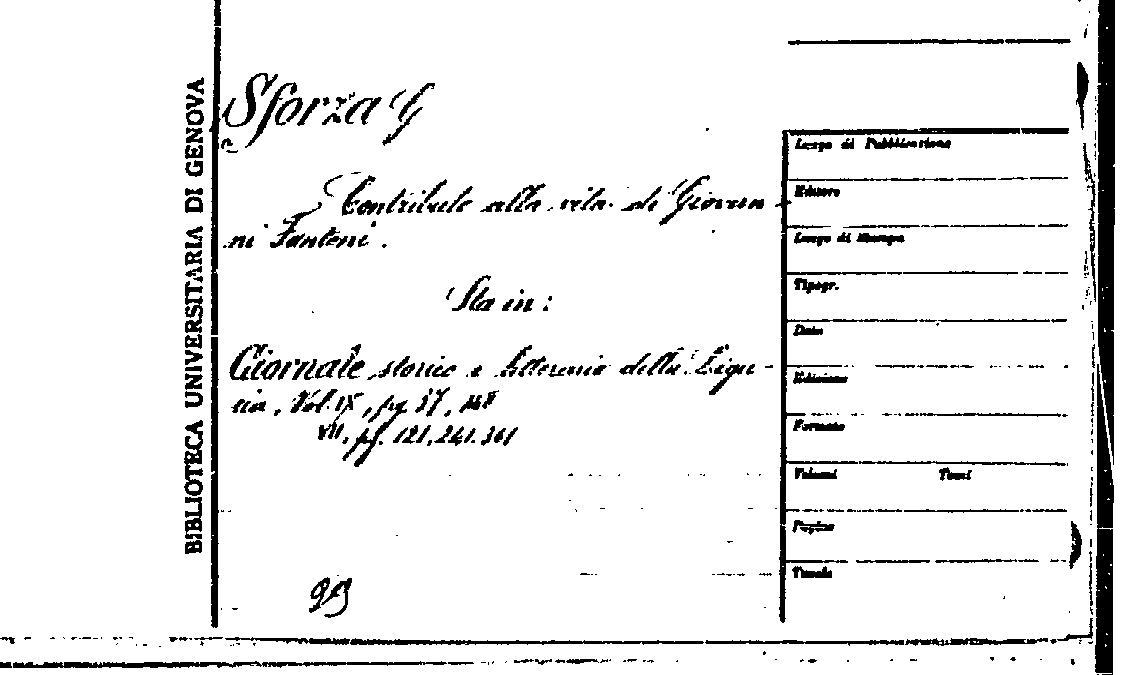 BIBLIOTECA UNIVERSITARIA DI GENOVA
Sforza G
Contributo alla vita di Giovan-
ni Fantoni.
Sta in:
Giornale storico e letterario della Ligu-
ria, Vol. IX, pg. 37, 148
VII, pg. 121, 241, 361
Luogo di Pubblicazione
Editore
Luogo di Stampa
Tipogr.
Data
Edizione
Formato
Volumi Tomi
Pagine
Tavole